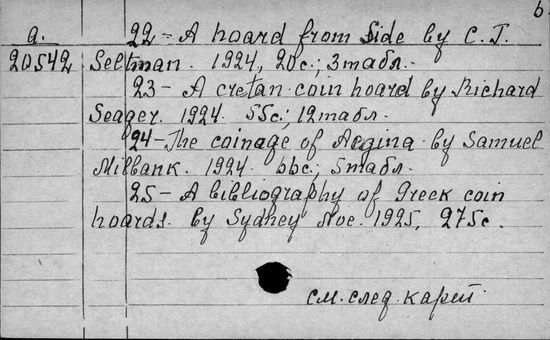 6
a. 22 - A hoard from Side by C.T.
20542 Seltman. 1924, 20c.; 3табл.
23 - A cretan coin hoard by Richard
Seager. 1924. 55c.; 12табл.
24 - The coinage of Aegina by Samuel
Milbank. 1924. 66c.; 5табл.
25 - A bibliography of Greek coin
hoards. by Sydney Noe. 1925, 275c.
см. след. карт.